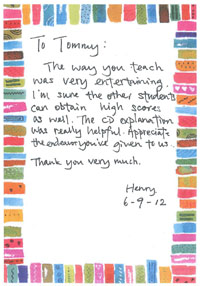 To Tommy:
The way you teach
was very entertaining.
I'm sure the other students
can obtain high scores
as well. The CD explanation
was really helpful. Appreciate
the endeavor you've given to us.
Thank you very much.
Henry
6-9-12